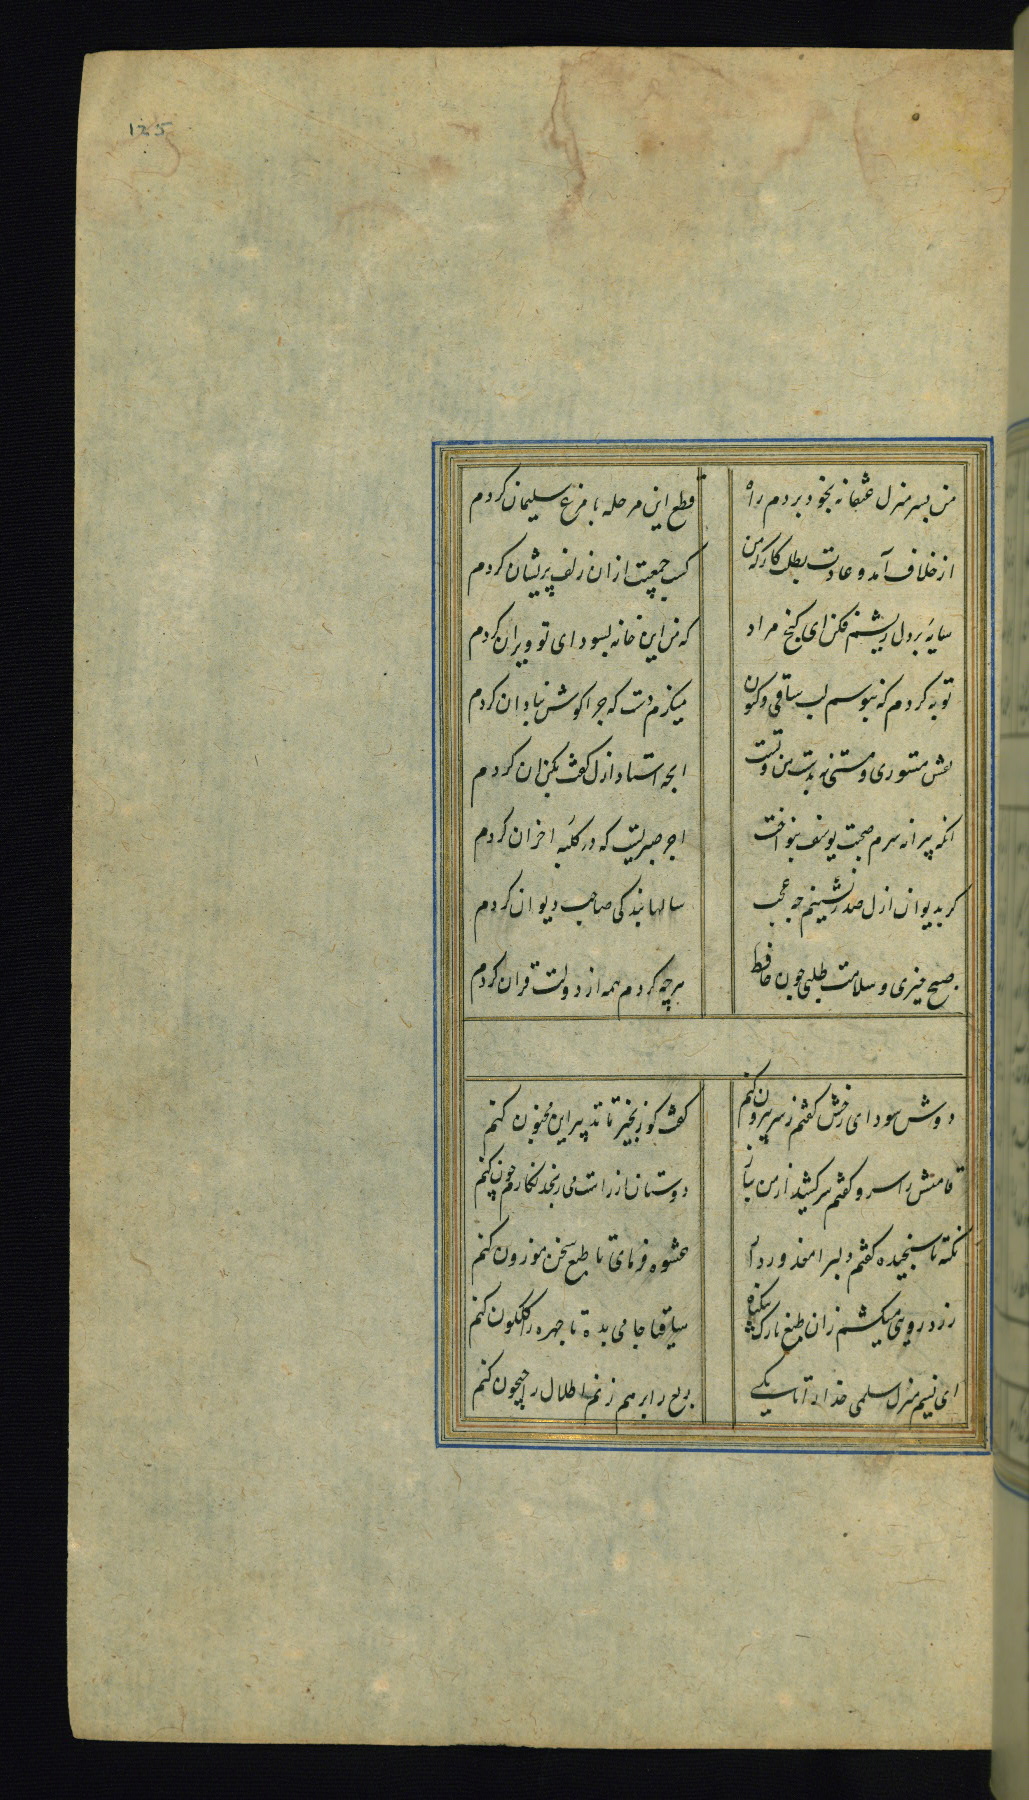 125
من بسر منزل عنقا نه بخود بردم راه قطع این مرحله با مرغ سلیمان کردم
از خلاف آمد عادت بطلب کام که من کسب جمعیت از ان زلف پریشان کردم
سایهٔ بر دل ریشم فکن ای کنج مراد که من این خانه بسودای تو ویران کردم
توبه کردم که نبوسم لب ساقی و کنون میکزم لب که چرا کوش بنادان کردم
نقش مستوری و مستی نه بدست من و تست انچه استاد ازل کفت بکن ان کردم
انکه پیرانه سرم صحبت یوسف بنواخت اجر صبریست که در کلبه احزان کردم
کر بدیوان ازل صدر نشینم چه عجب سالها بندکی صاحب دیوان کردم
صبح خیزی و سلامت طلبی چون حافظ هر چه کردم همه از دولت قران کردم
دوش سودای رخش کفتم ز سر بیرون کنم کفت کو زنجیر تا تدبیر این مجنون کنم
قامتش را سرو کفتم سر کشید از من بناز دوستان از راست می رنجد نکارم چون کنم
نکته ناسنجیده کفتم دلبرا معذور دار عشوه فرمای تا طبع سخن موزون کنم
زرد رویی میکشم زان طبع نازک بیکناه ساقیا جامی بده تا چهره را کلکون کنم
ای نسیم منزل سلمی خدا را تا بکی ربع را برهم زنم اطلال را جیحون کنم